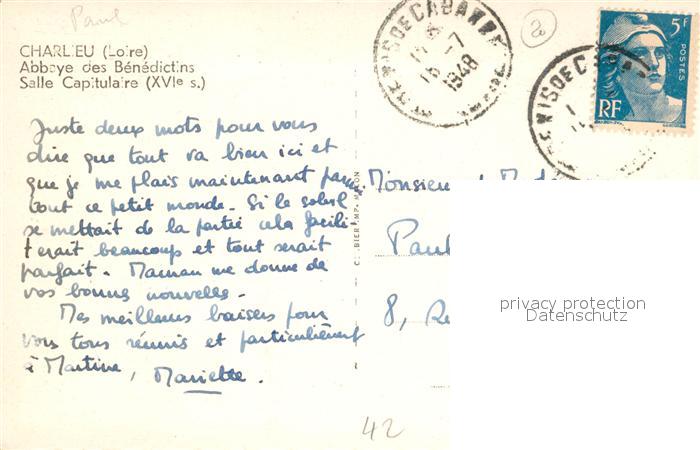 Paul
CHARLIEU (Loire)
Abbaye des Bénédictins
Salle Capitulaire (XVIe s.)
Juste deux mots pour vous
dire que tout va bien ici et
que je me plais maintenant parmi
tout ce petit monde. Si le soleil
se mettait de la partie cela facili-
terait beaucoup et tout serait
parfait. Maman me donne de
vos bonnes nouvelles.
Mes meilleurs baisers pour
vous tous réunis et particulièrement
à Martine, Mariette.
Monsieur
Paul
8,
privacy protection
Datenschutz
42
1948
5F
POSTES
RF